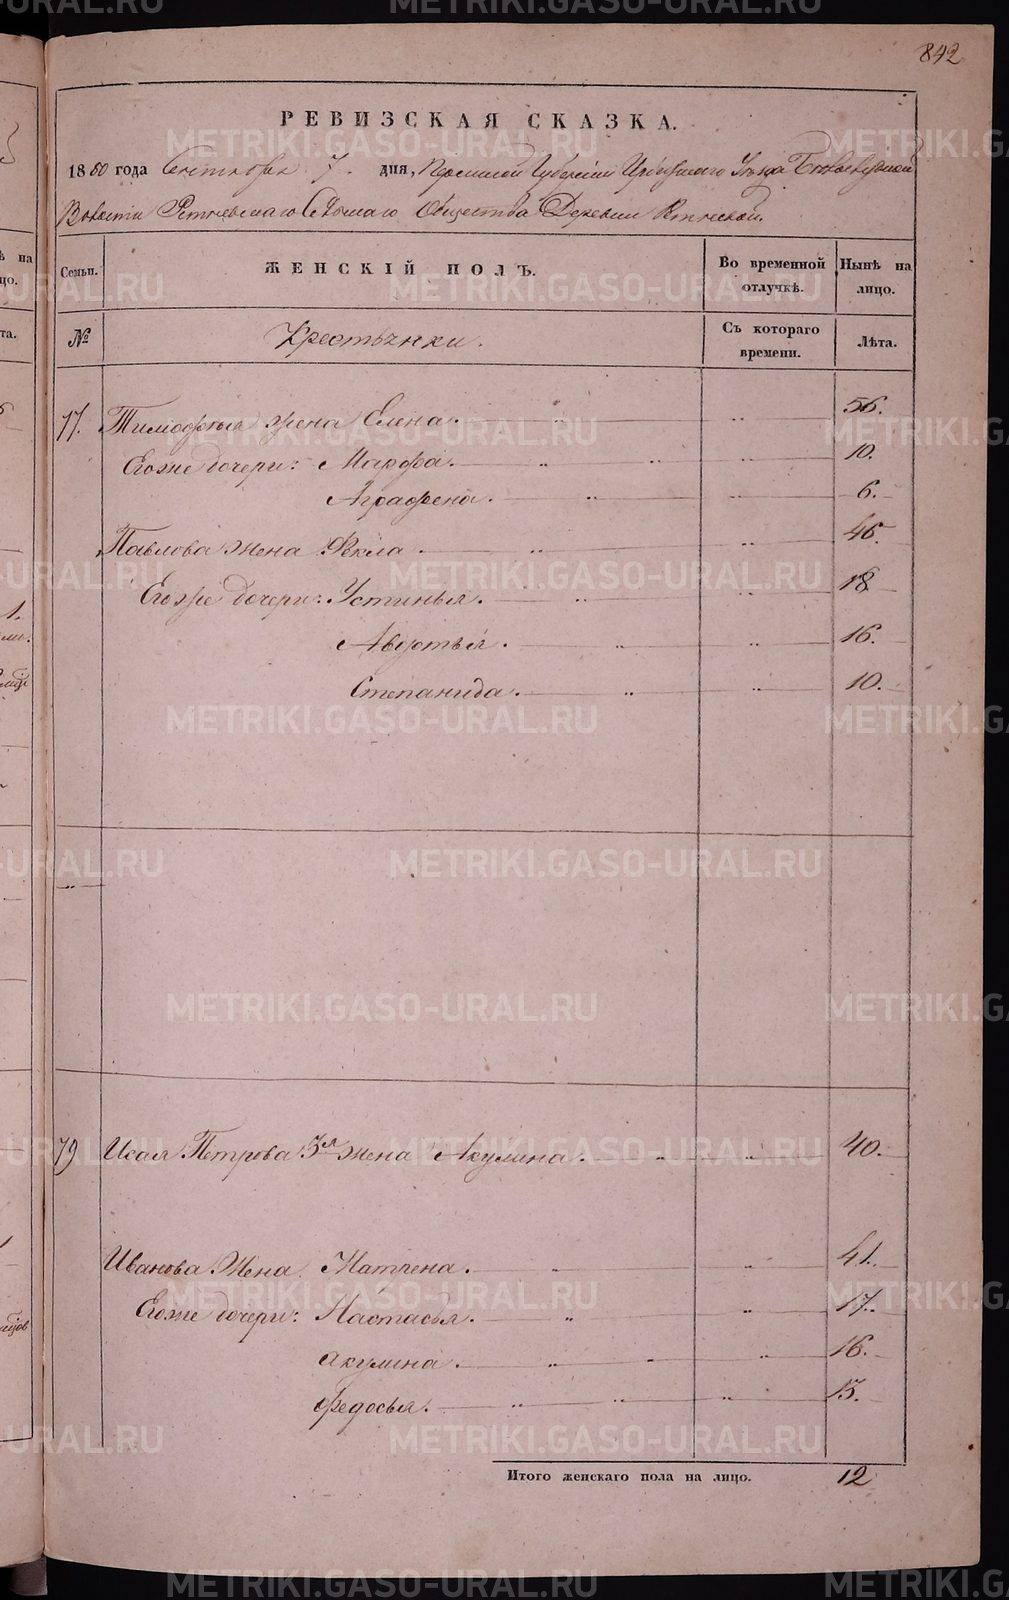 842
РЕВИЗСКАЯ СКАЗКА.
1850 года Сентября 7. дня, Пермской Губернии Ирбитскаго Уѣзда
Волости Сельскаго Общества Деревни
Семьи. ЖЕНСКІЙ ПОЛЪ. Во временной отлучкѣ. Нынѣ на лицо.
№ Крестьянки. Съ котораго времени. Лѣта.
77. Тимофѣя жена Елена. 56.
Егоже дочери: Марфа. 10.
Аграфена. 6.
Павлова жена Фекла 46.
Егоже дочери: Устинья. 18
Авдотья. 16.
Степанида. 10.
79 Исая Петрова 3я жена Акулина. 40.
Иванова жена Матрена. 41.
Егоже дочери: Настасья. 17.
Акулина. 16.
Федосья. 13.
Итого женскаго пола на лицо. 12
METRIKI.GASO-URAL.RU